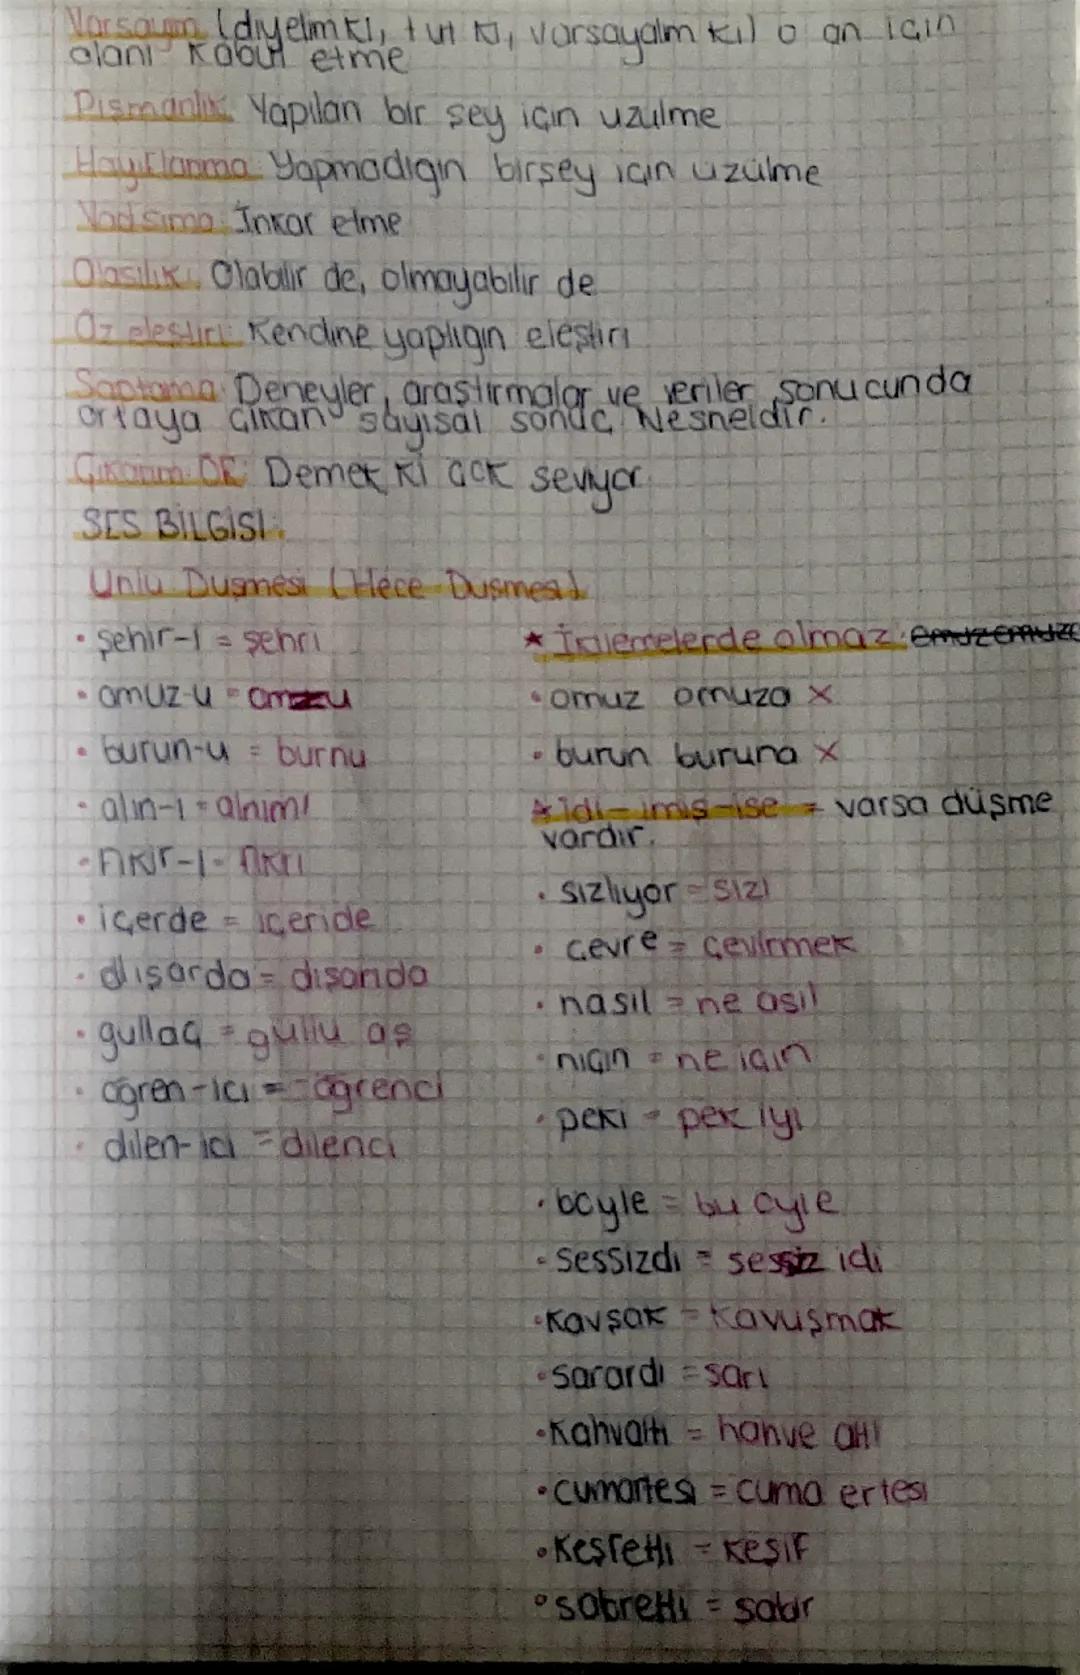 Varsayım (diyelim ki, tut ki, varsayalm ki) o an için
olanı kabul etme
Pişmanlık: Yapılan bir şey için uzulme
Hayıflanma: Yapmadıgın birşey için üzülme
Yadsıma: İnkar etme
Olasılık: Olabilir de, olmayabilir de
Öz eleştiri: Kendine yaptıgın eleştiri
Saptama: Deneyler, araştırmalar ve veriler sonucunda
ortaya çıkan sayısal sonuc Nesneldir.
Çıkarım: Demek ki ack seviyor
SES BİLGİSİ:
Unlu Duşmesi (Hece Duşmesi)
• şehir-i = şehri
• omuz-u = omzu
• burun-u = burnu
• alın-ı = alnım!
• fikir-i = fikri
• içerde = içeride
• dışarda = dışarıda
• gullaç = güllü aş
• ögren-ici = ögrenci
• dilen-ici = dilenci
★ İkilemelerde olmaz: omuz omuza
• omuz omuza X
• burun buruna X
★ idi-imiş-ise = varsa düşme
vardır.
• sızlıyor = sızı
• çevre = çevirmek
• nasıl = ne asıl
• niçin = ne için
• peki = pek iyi
• böyle = bu öyle
• sessizdi = sessiz idi
• Kavşak = Kavuşmak
• sarardı = sarı
• Kahvaltı = hahve altı
• cumartesi = cuma ertesi
• Keşfetti = keşif
• sabretti = sabır